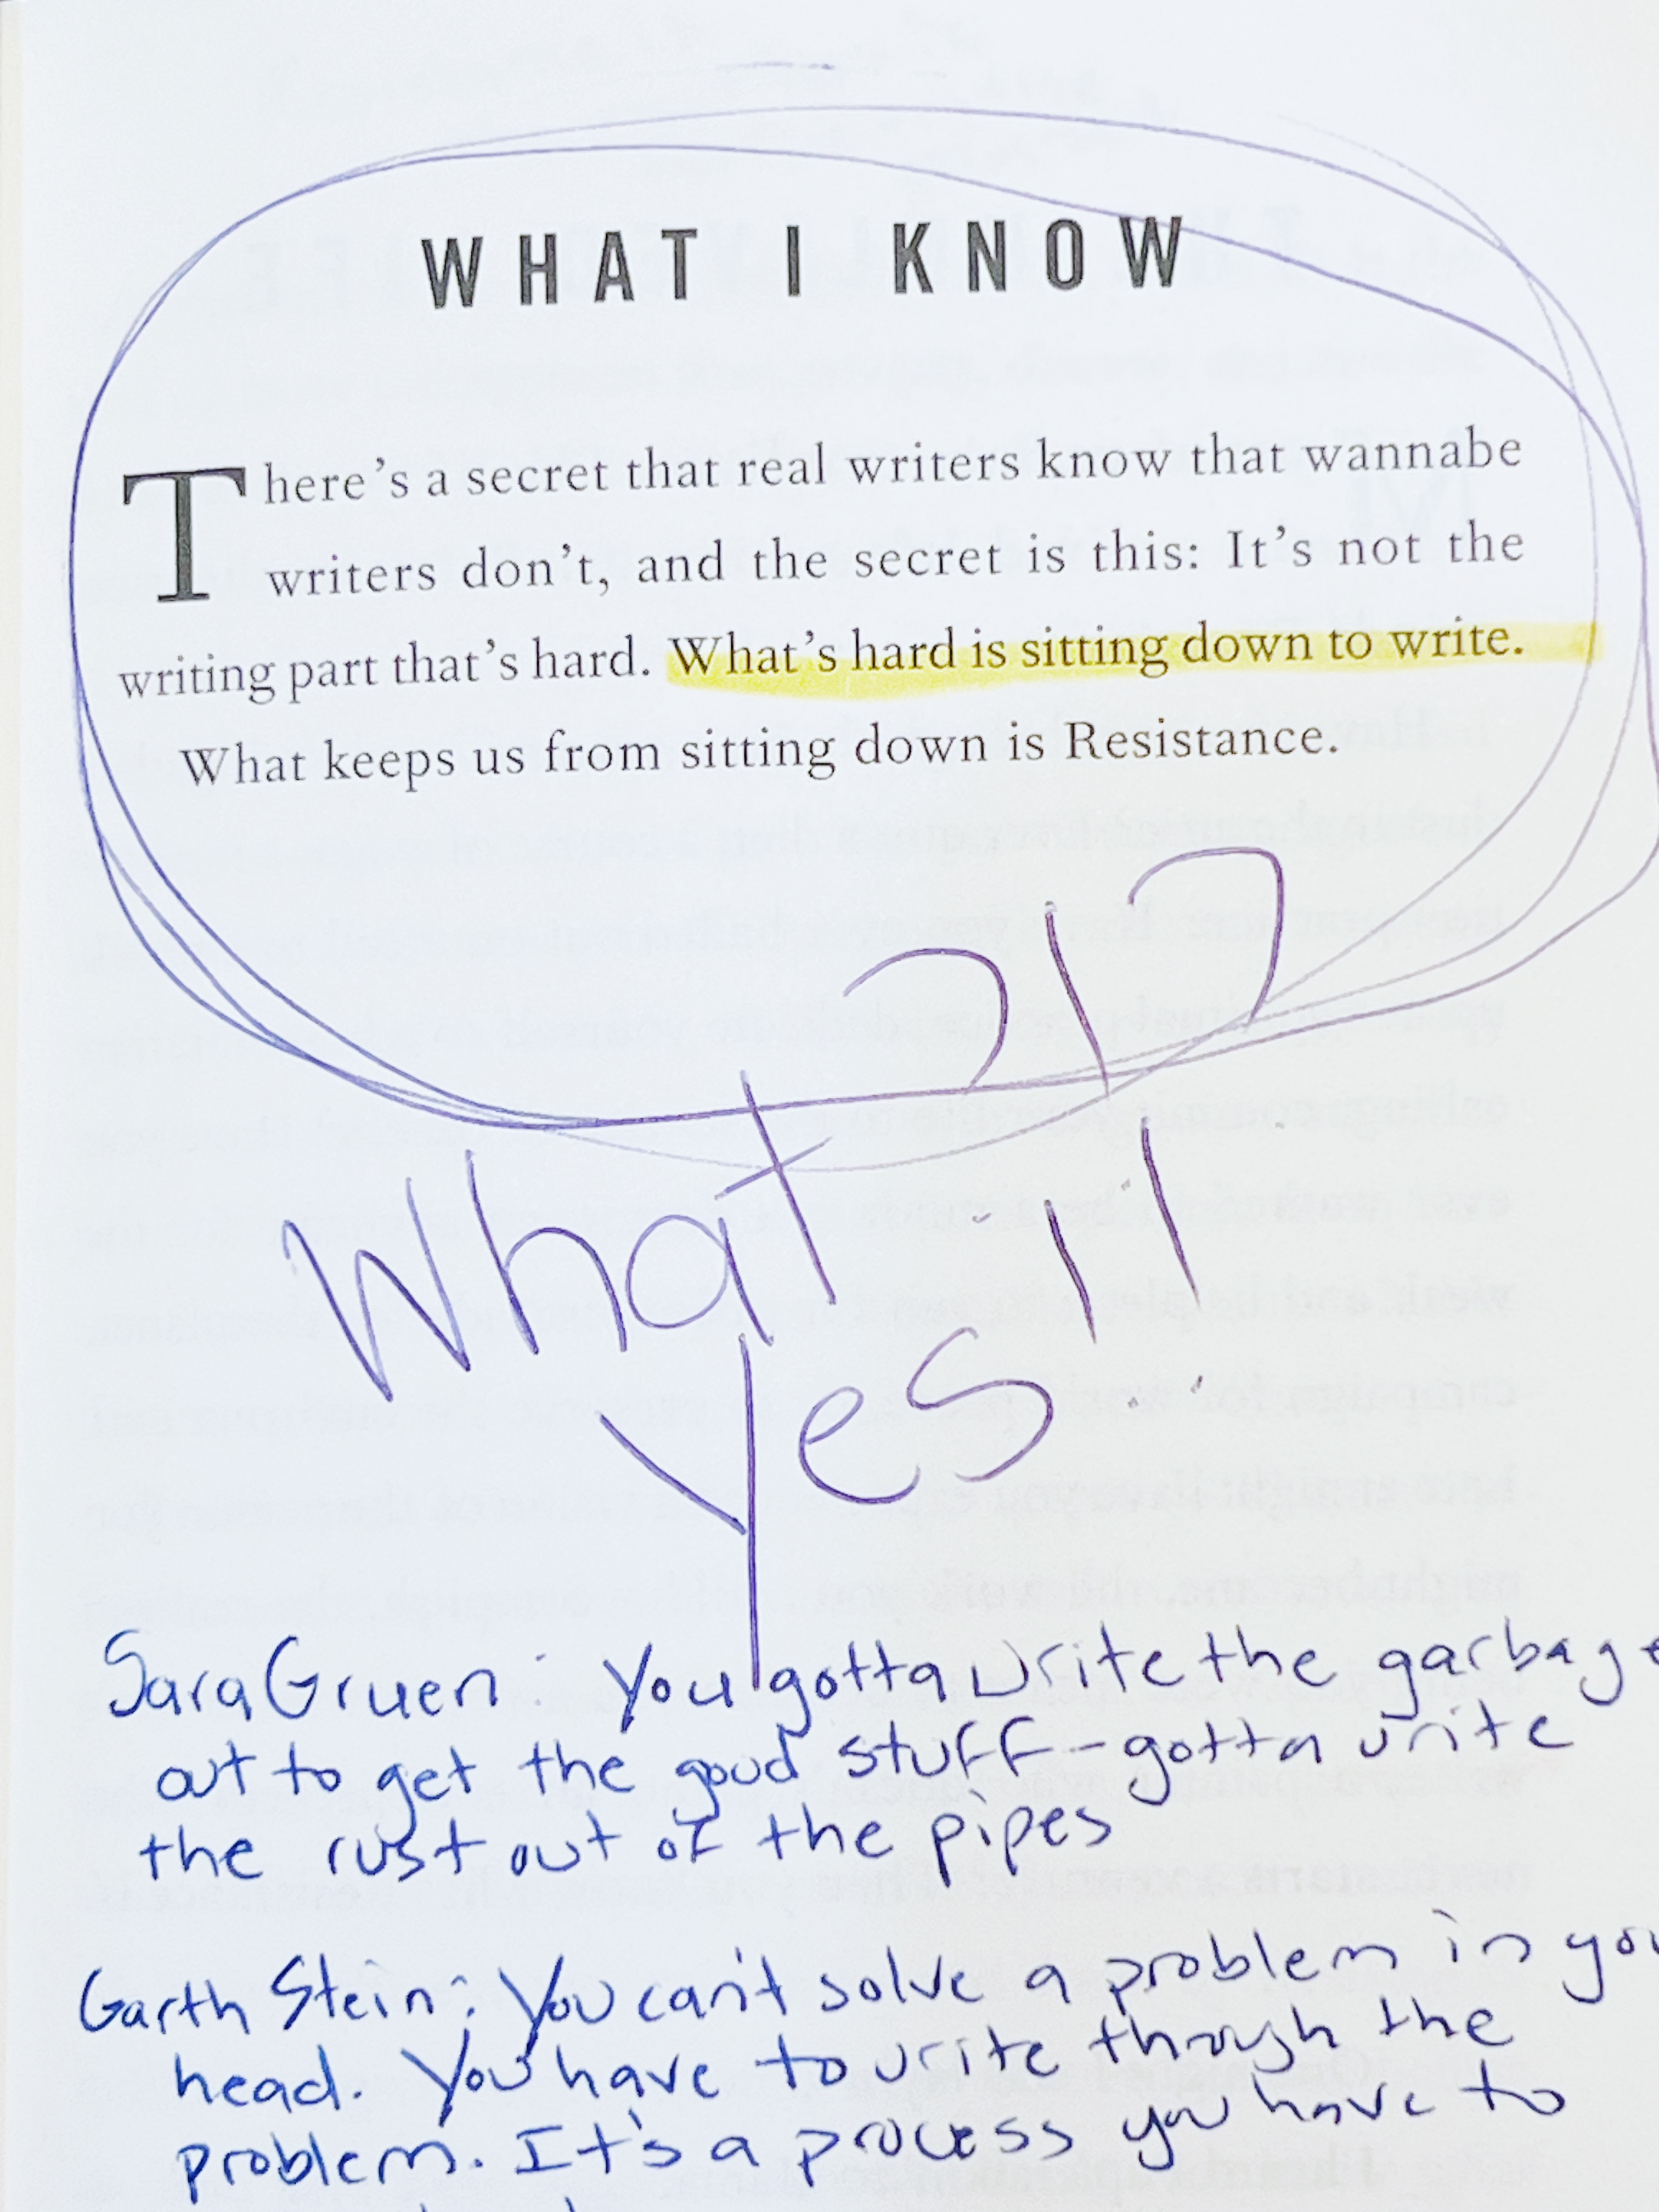 WHAT I KNOW
There's a secret that real writers know that wannabe
writers don't, and the secret is this: It's not the
writing part that's hard. What's hard is sitting down to write.
What keeps us from sitting down is Resistance.
What ?!?
Yes!!
Sara Gruen: You gotta write the garbage
out to get the good stuff - gotta write
the rust out of the pipes
Garth Stein: You can't solve a problem in you
head. You have to write through the
problem. It's a process you have to